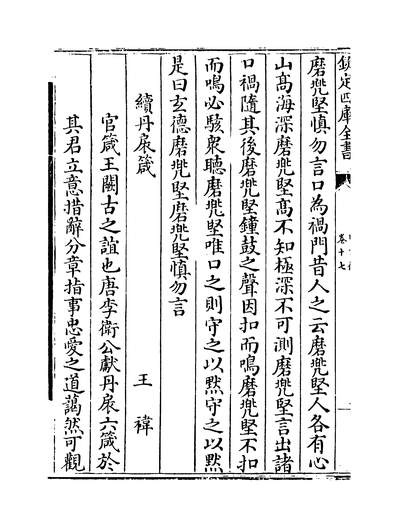 欽定四庫全書
卷十七
磨兠堅慎勿言口為禍門昔人之云磨兠堅人各有心
山髙海深磨兠堅髙不知極深不可測磨兠堅言出諸
口禍隨其後磨兠堅鐘鼓之聲因扣而鳴磨兠堅不扣
而鳴必駭衆聽磨兠堅唯口之則守之以黙守之以黙
是曰玄德磨兠堅磨兠堅慎勿言
續丹扆箴
王褘
官箴王闕古之誼也唐李衛公獻丹扆六箴於
其君立意措辭分章指事忠愛之道藹然可觀